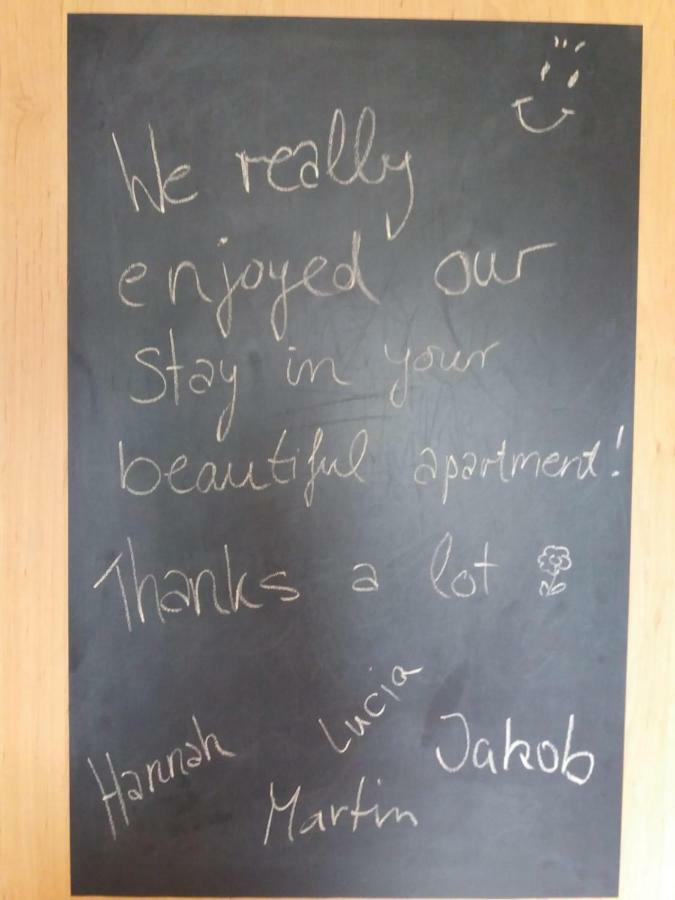 We really
enjoyed our
Stay in your
beautiful apartment!
Thanks a lot
Hannah
Lucia
Jakob
Martin